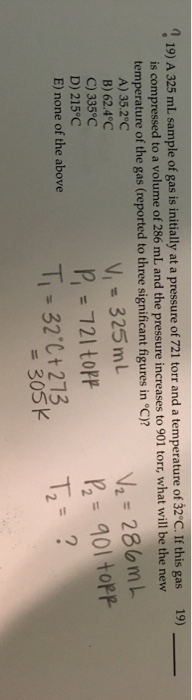 19) A 325 mL sample of gas is initially at a pressure of 721 torr and a temperature of 32°C. If this gas 19)
is compressed to a volume of 286 mL and the pressure increases to 901 torr, what will be the new
temperature of the gas (reported to three significant figures in °C)?
A) 35.2°C
B) 62.4°C
C) 335°C
D) 215°C
E) none of the above
V₁ = 325 mL V₂ = 286 mL
P₁ = 721 torr P₂ = 901 torr
T₁ = 32°C + 273 T₂ = ?
= 305K